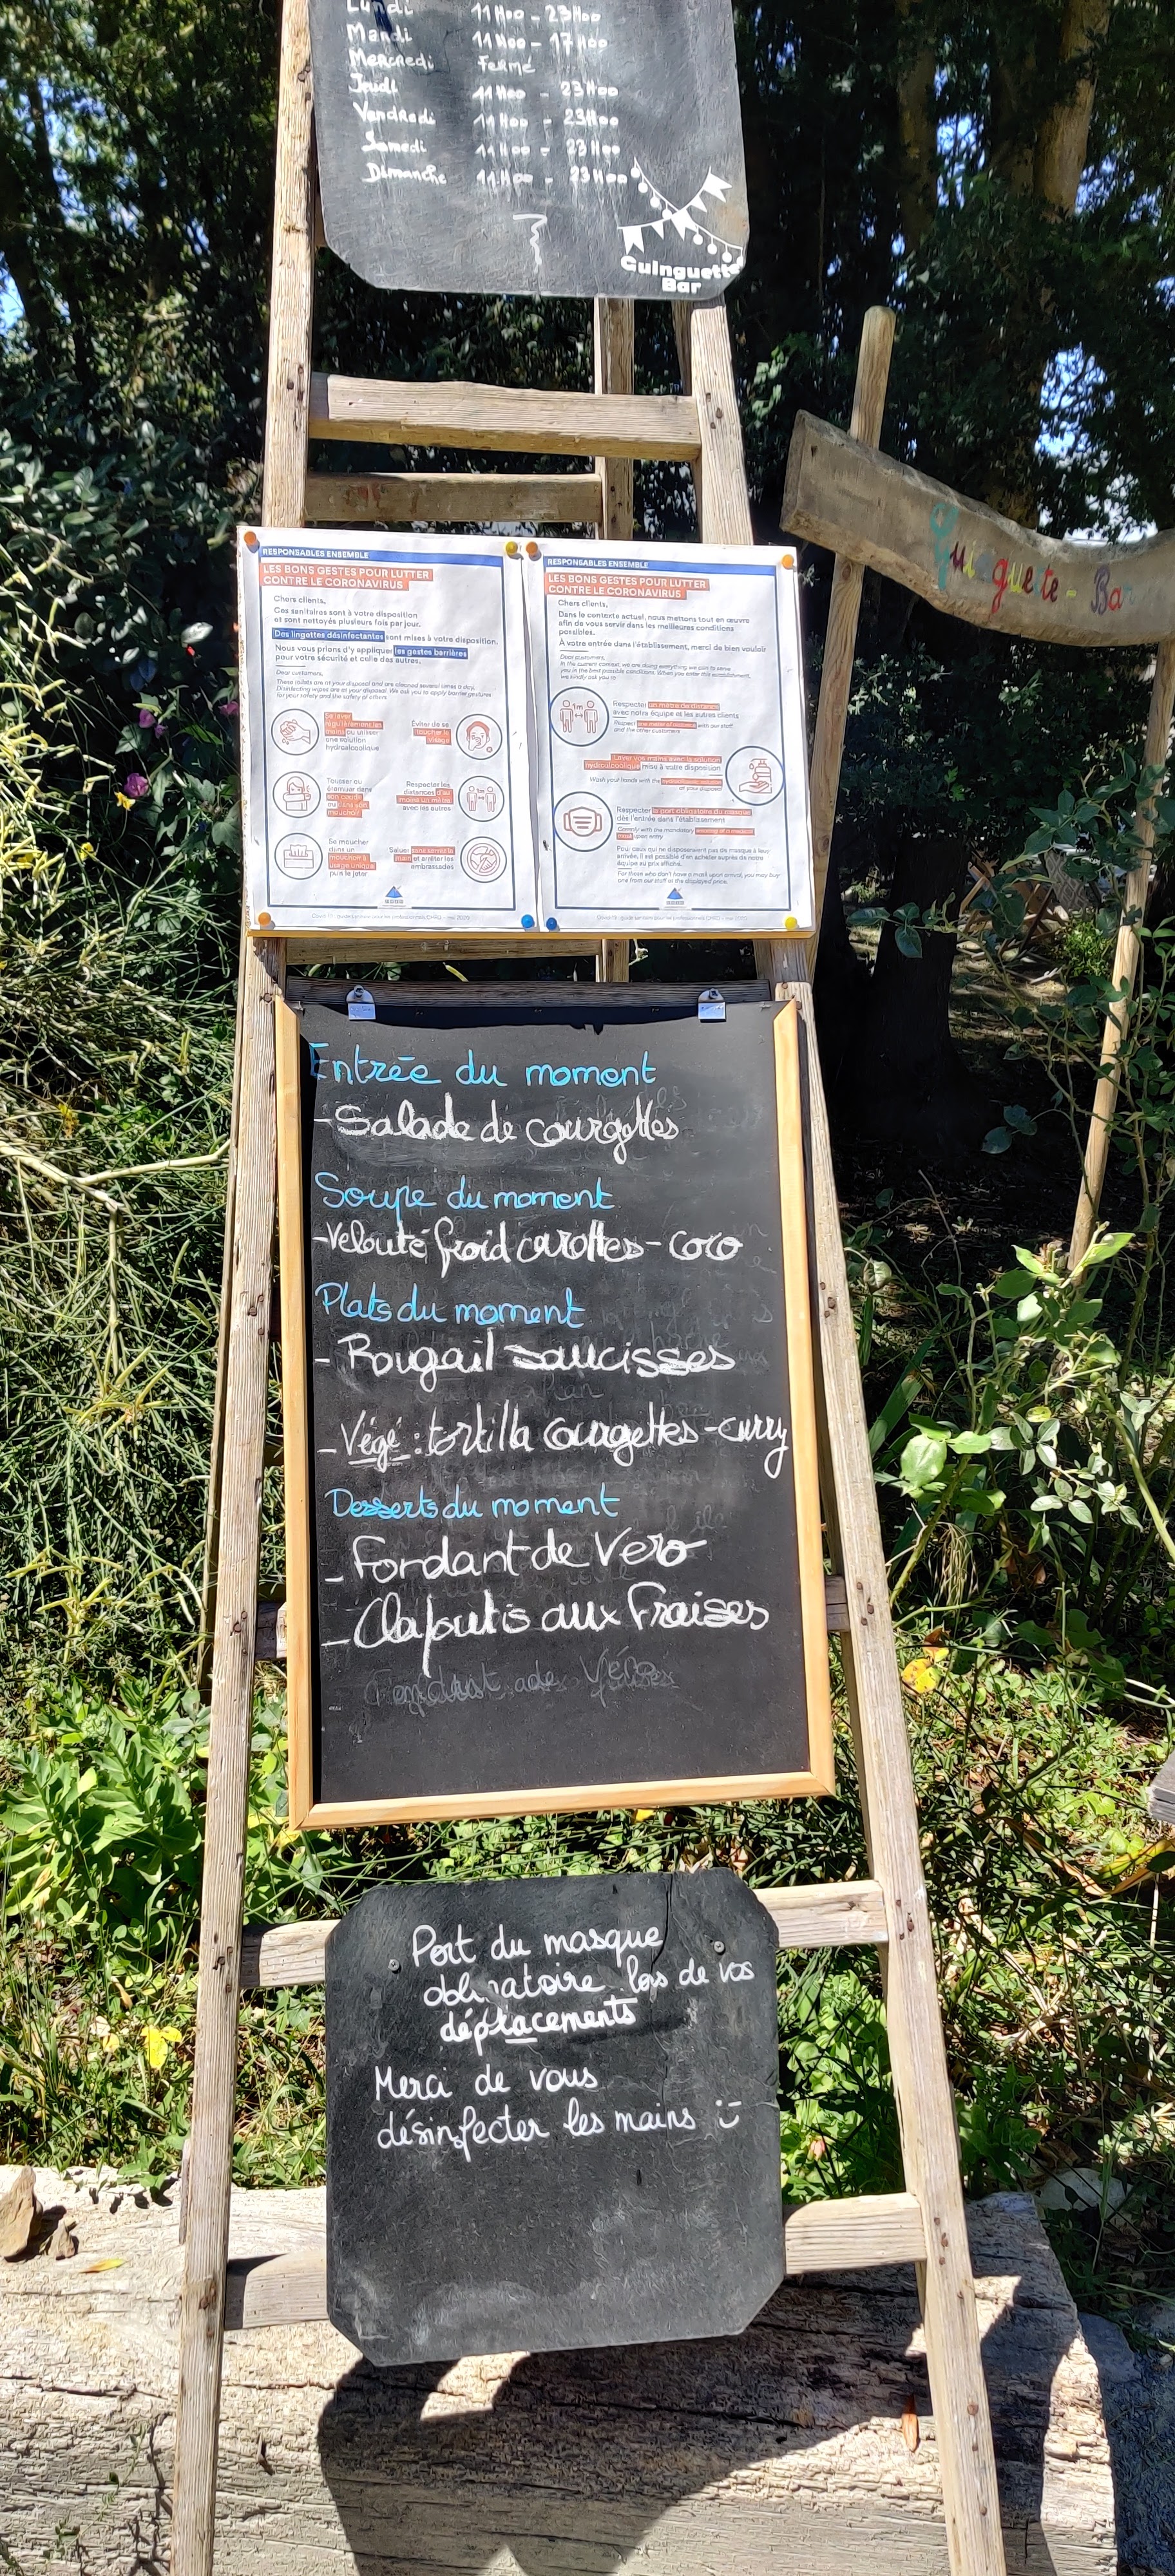 Lundi 11H00 - 23H00
Mardi 11H00 - 17H00
Mercredi Fermé
Jeudi 11H00 - 23H00
Vendredi 11H00 - 23H00
Samedi 11H00 - 23H00
Dimanche 11H00 - 23H00
Guinguette
Bar
Guinguete - Bar
RESPONSABLES ENSEMBLE
LES BONS GESTES POUR LUTTER
CONTRE LE CORONAVIRUS
Chers clients,
Ces sanitaires sont à votre disposition
et sont nettoyés plusieurs fois par jour.
Des lingettes désinfectantes sont mises à votre disposition.
Nous vous prions d'y appliquer les gestes barrières
pour votre sécurité et celle des autres.
Dear customers,
These toilets are at your disposal and are cleaned several times a day.
Disinfecting wipes are at your disposal. We ask you to apply barrier gestures
for your safety and the safety of others
Se laver
régulièrement les
mains ou utiliser
une solution
hydroalcoolique
Éviter de se
toucher le
visage
Tousser ou
éternuer dans
son coude
ou dans son
mouchoir
Respecter les
distances d'au
moins un mètre
avec les autres
Se moucher
dans un
mouchoir à
usage unique
puis le jeter
Saluer sans serrer la
main et arrêter les
embrassades
RESPONSABLES ENSEMBLE
LES BONS GESTES POUR LUTTER
CONTRE LE CORONAVIRUS
Chers clients,
Dans le contexte actuel, nous mettons tout en œuvre
afin de vous servir dans les meilleures conditions
possibles.
À votre entrée dans l'établissement, merci de bien vouloir
Dear customers,
In the current context, we are doing everything we can to serve
you in the best possible conditions. When you enter this establishment,
we kindly ask you to
1m
Respecter un mètre de distance
avec notre équipe et les autres clients
Respect one metre of distance with our staff
and the other customers
Laver vos mains avec la solution
hydroalcoolique mise à votre disposition
Wash your hands with the hydroalcoholic solution
at your disposal
Respecter le port obligatoire du masque
dès l'entrée dans l'établissement
Comply with the mandatory wearing of a medical
mask upon entry
Pour ceux qui ne disposeraient pas de masque à leur
arrivée, il est possible d'en acheter auprès de notre
équipe au prix affiché.
For those who don't have a mask upon arrival, you may buy
one from our staff at the displayed price.
Entrée du moment
- Salade de courgettes
Soupe du moment
- Velouté froid carottes - coco
Plats du moment
- Rougail saucisses
- Végé : tortilla courgettes - curry
Desserts du moment
- Fondant de Vero
- Clafoutis aux Fraises
Port du masque
obligatoire lors de vos
déplacements
Merci de vous
désinfecter les mains :)